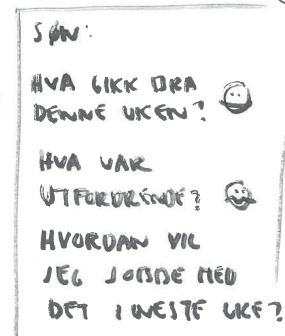 SØN:
HVA GIKK BRA
DENNE UKEN?
HVA VAR
UTFORDRENDE?
HVORDAN VIL
JEG JOBBE MED
DET I NESTE UKE?